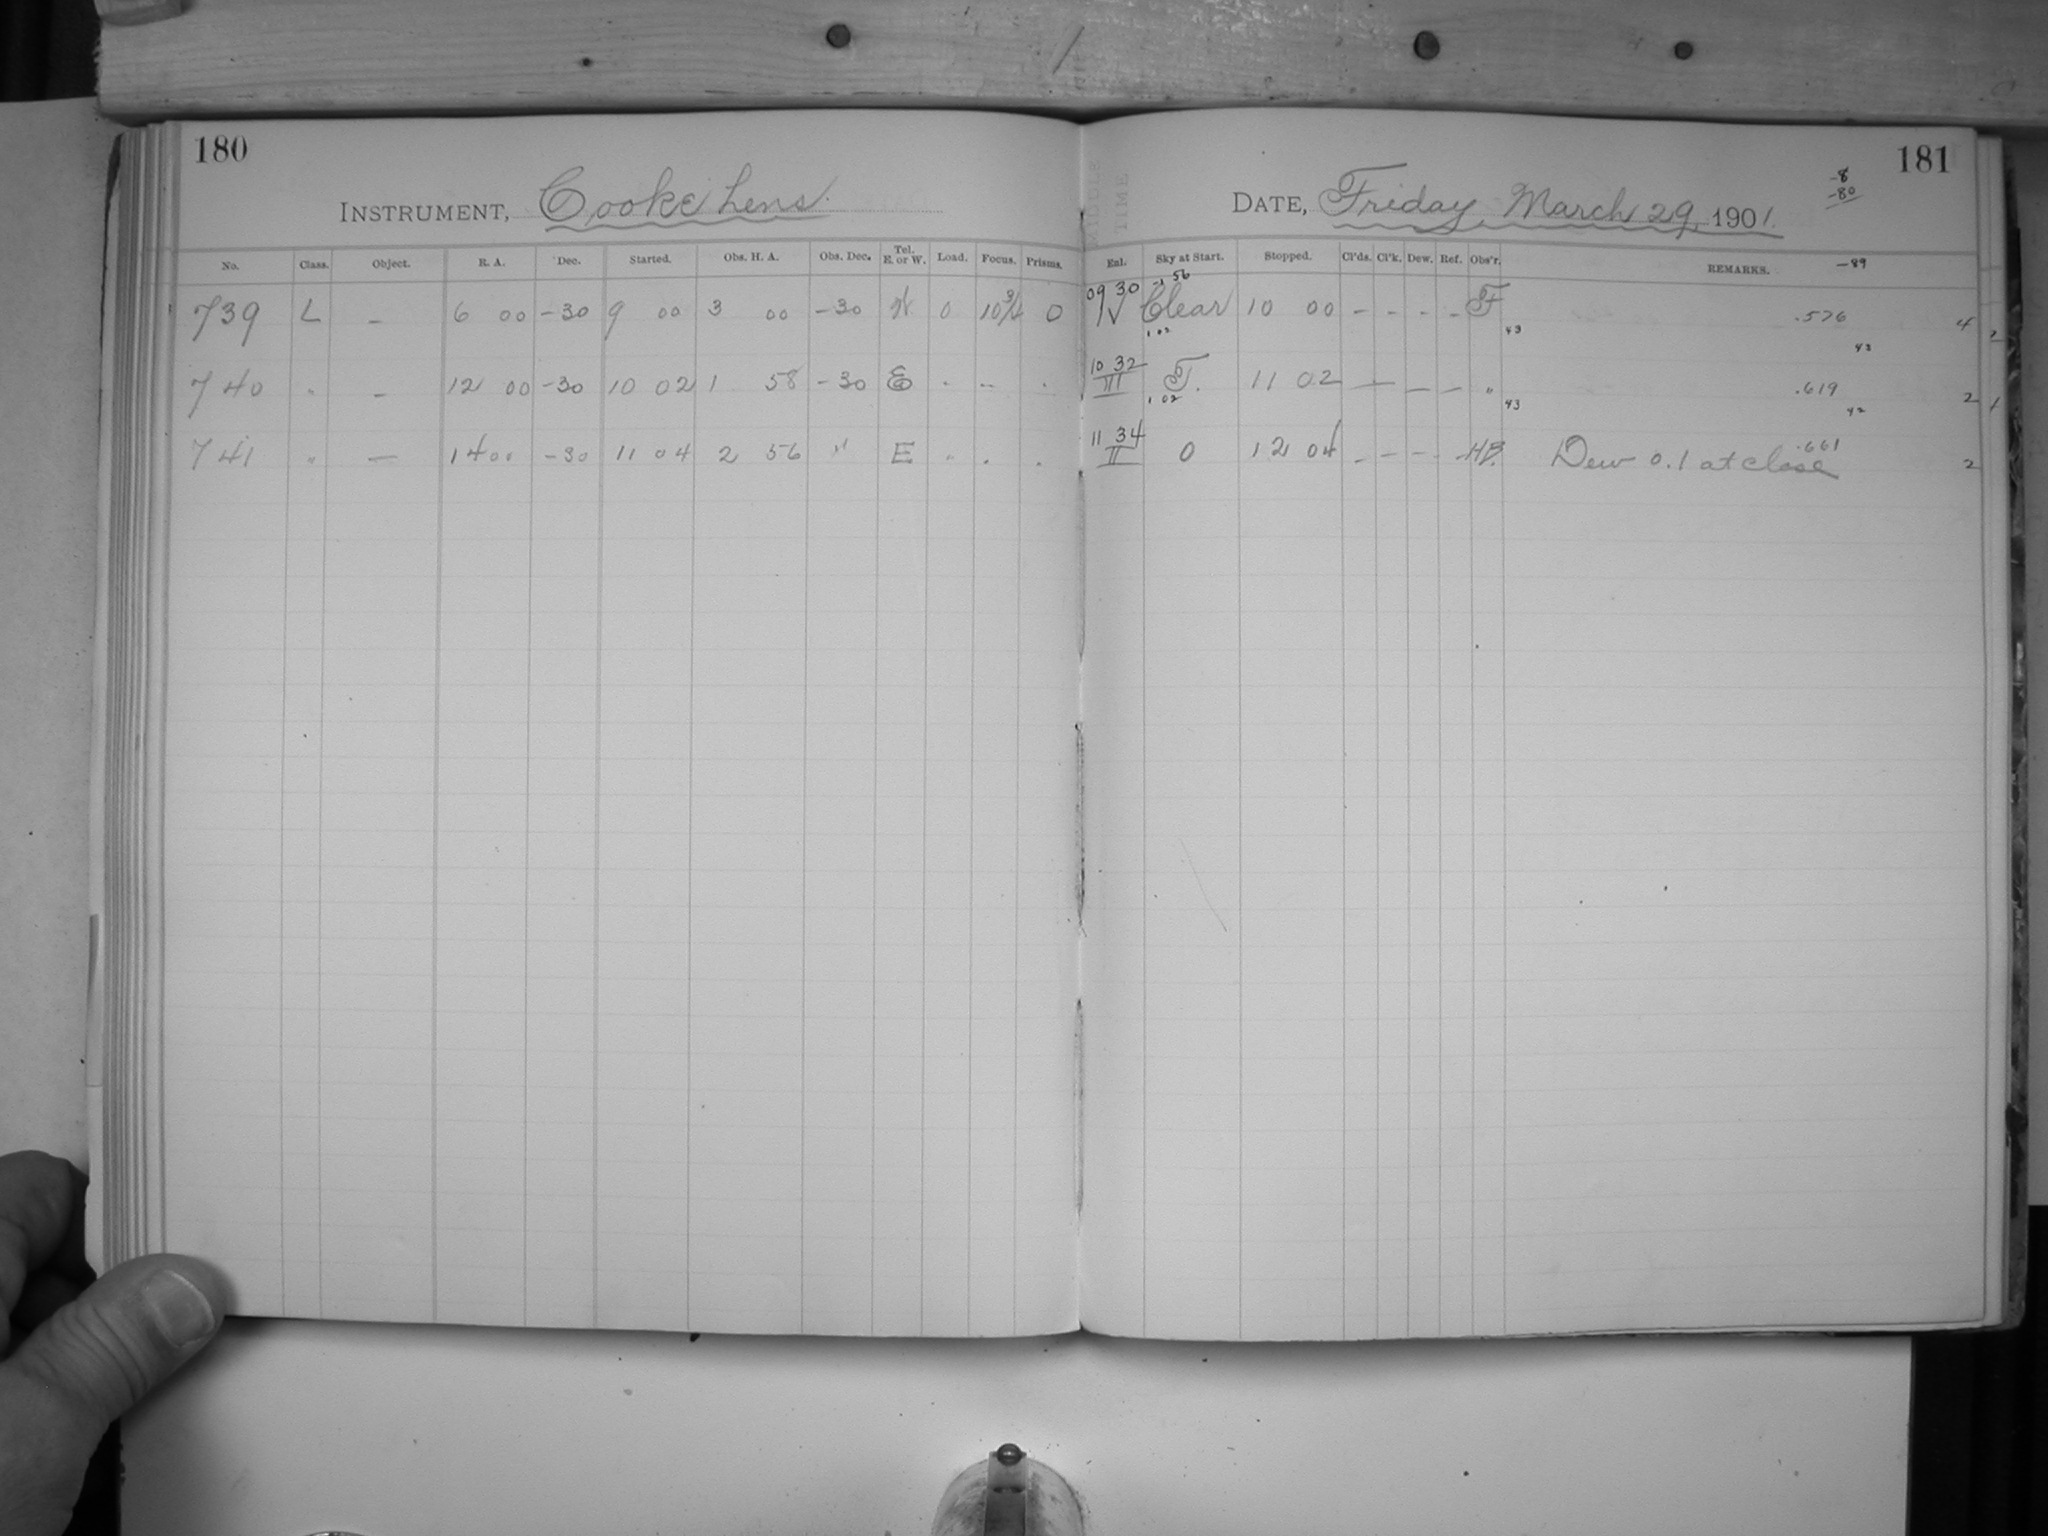 180
INSTRUMENT, Cooke Lens.
No. Class. Object. R. A. Dec. Started. Obs. H. A. Obs. Dec. Tel. E. or W. Load. Focus. Prisms.
739 L – 6 00 -30 9 00 3 00 -30 W 0 10 3/4 0
740 " – 12 00 -30 10 02 1 58 -30 E " " "
741 " — 14 00 -30 11 04 2 56 " E " " "
181
-8
-80
DATE, Friday, March 29, 1901.
MIDDLE TIME
Enl. Sky at Start. Stopped. Cl'ds. Cl'k. Dew. Ref. Obs'r. REMARKS. -89
09 30 -1 56
IV Clear 10 00 – – – – F .576 4
1 02 43 43
10 32
III F. 11 02 — — — " .619 2
1 02 43 42
11 34
II 0 12 04 – – – – HB. Dew 0.1 at close .661 2